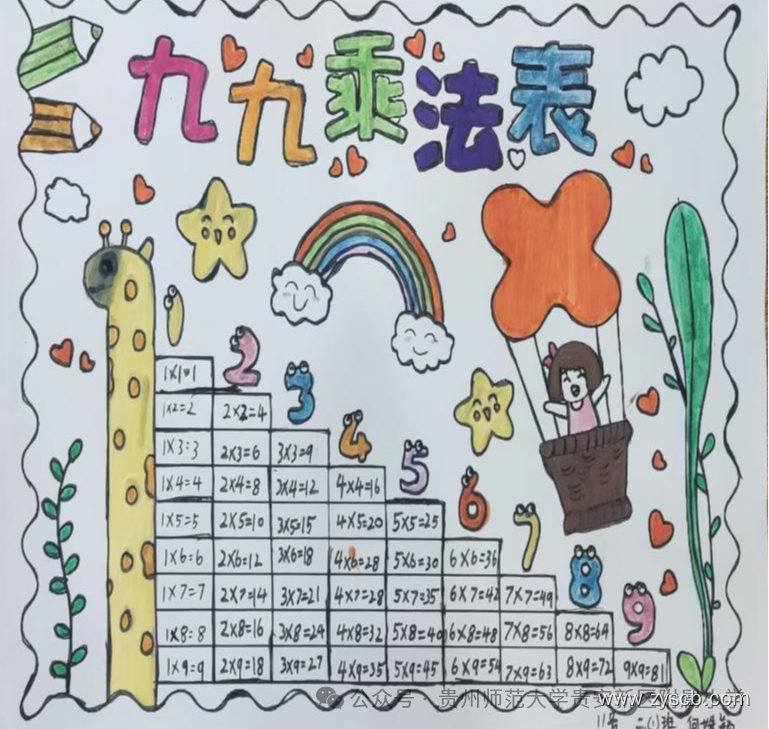 九九乘法表
1
2
1×1=1
3
1×2=2 2×2=4
4
1×3=3 2×3=6 3×3=9
5
1×4=4 2×4=8 3×4=12 4×4=16
6
1×5=5 2×5=10 3×5=15 4×5=20 5×5=25
7
1×6=6 2×6=12 3×6=18 4×6=28 5×6=30 6×6=36
8
1×7=7 2×7=14 3×7=21 4×7=28 5×7=35 6×7=42 7×7=49
9
1×8=8 2×8=16 3×8=24 4×8=32 5×8=40 6×8=48 7×8=56 8×8=64
1×9=9 2×9=18 3×9=27 4×9=35 5×9=45 6×9=54 7×9=63 8×9=72 9×9=81
公众号 贵州师范大学贵安新区
www.zyscb.com
11号 二(1)班